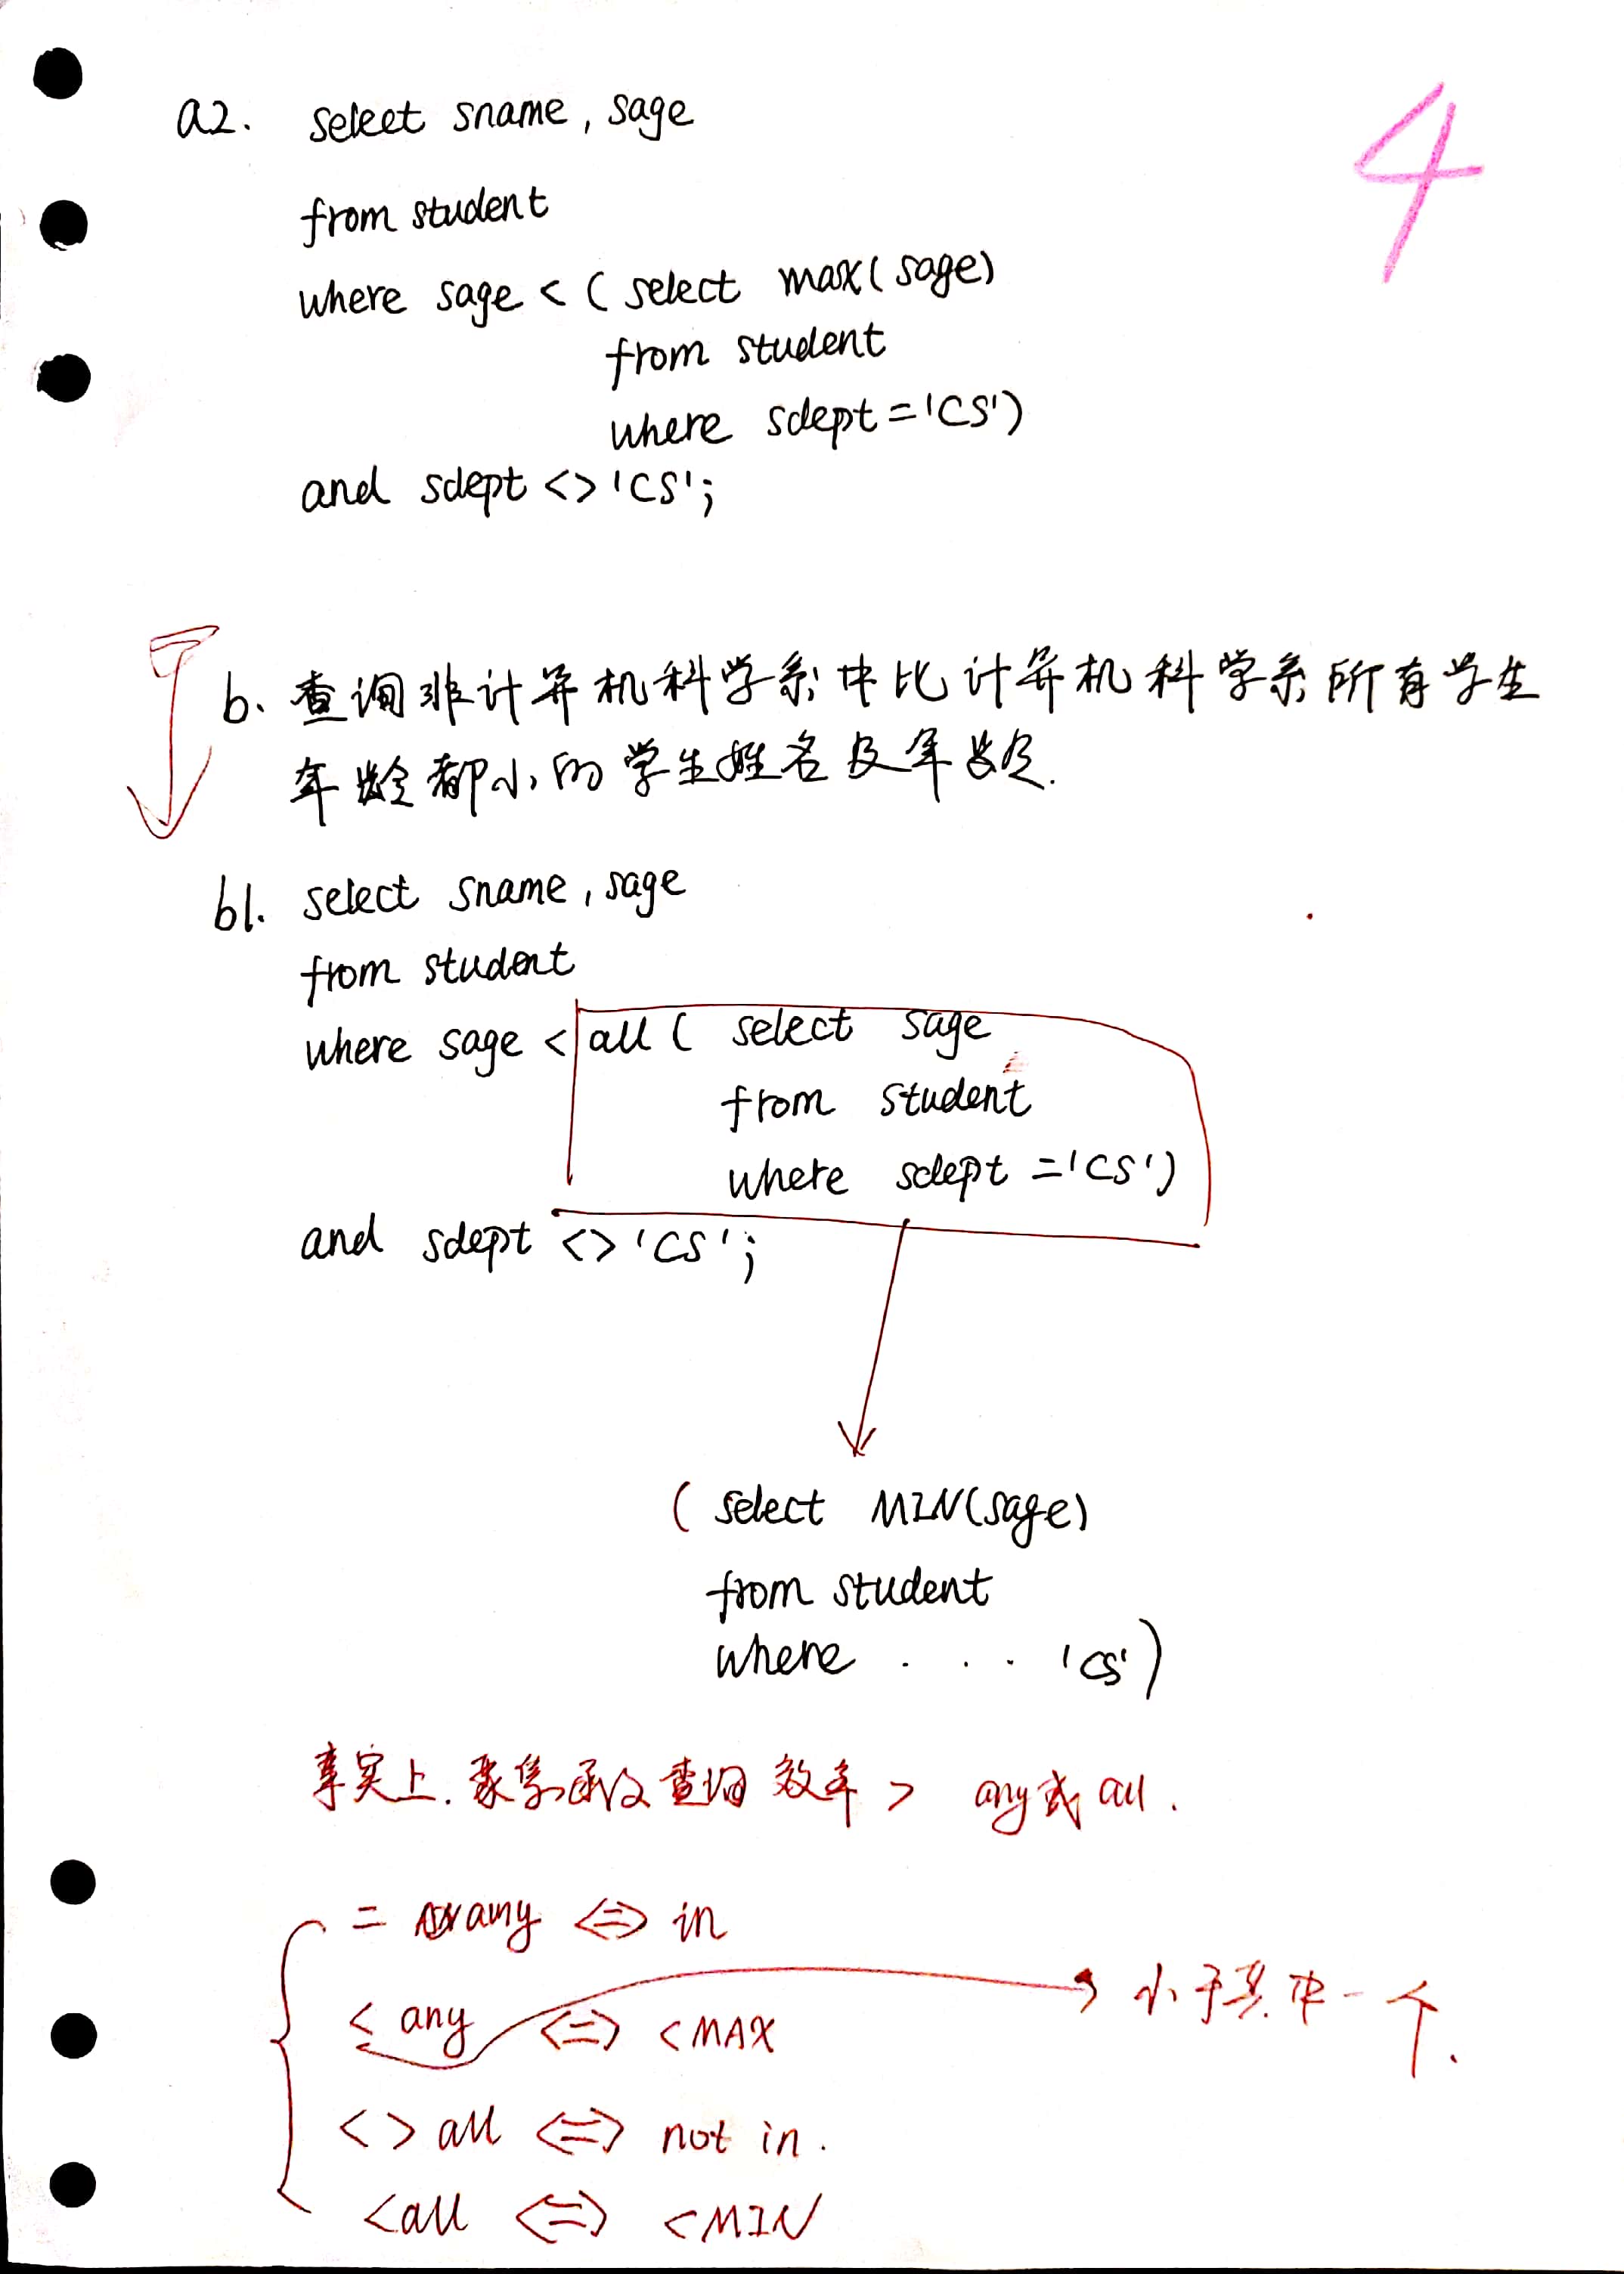 4
a2. select sname, sage
from student
where sage < ( select max(sage)
from student
where sdept = 'CS')
and sdept <> 'CS';
b. 查询非计算机科学系中比计算机科学系所有学生
年龄都小的学生姓名及年龄.
b1. select sname, sage
from student
where sage < all ( select sage
from student
where sdept = 'CS')
and sdept <> 'CS';
( select MIN(sage)
from student
where . . . 'CS')
事实上. 聚集函数查询效率 > any或all.
= any <=> in
< any <=> <MAX 小于其中一个.
<> all <=> not in.
<all <=> <MIN